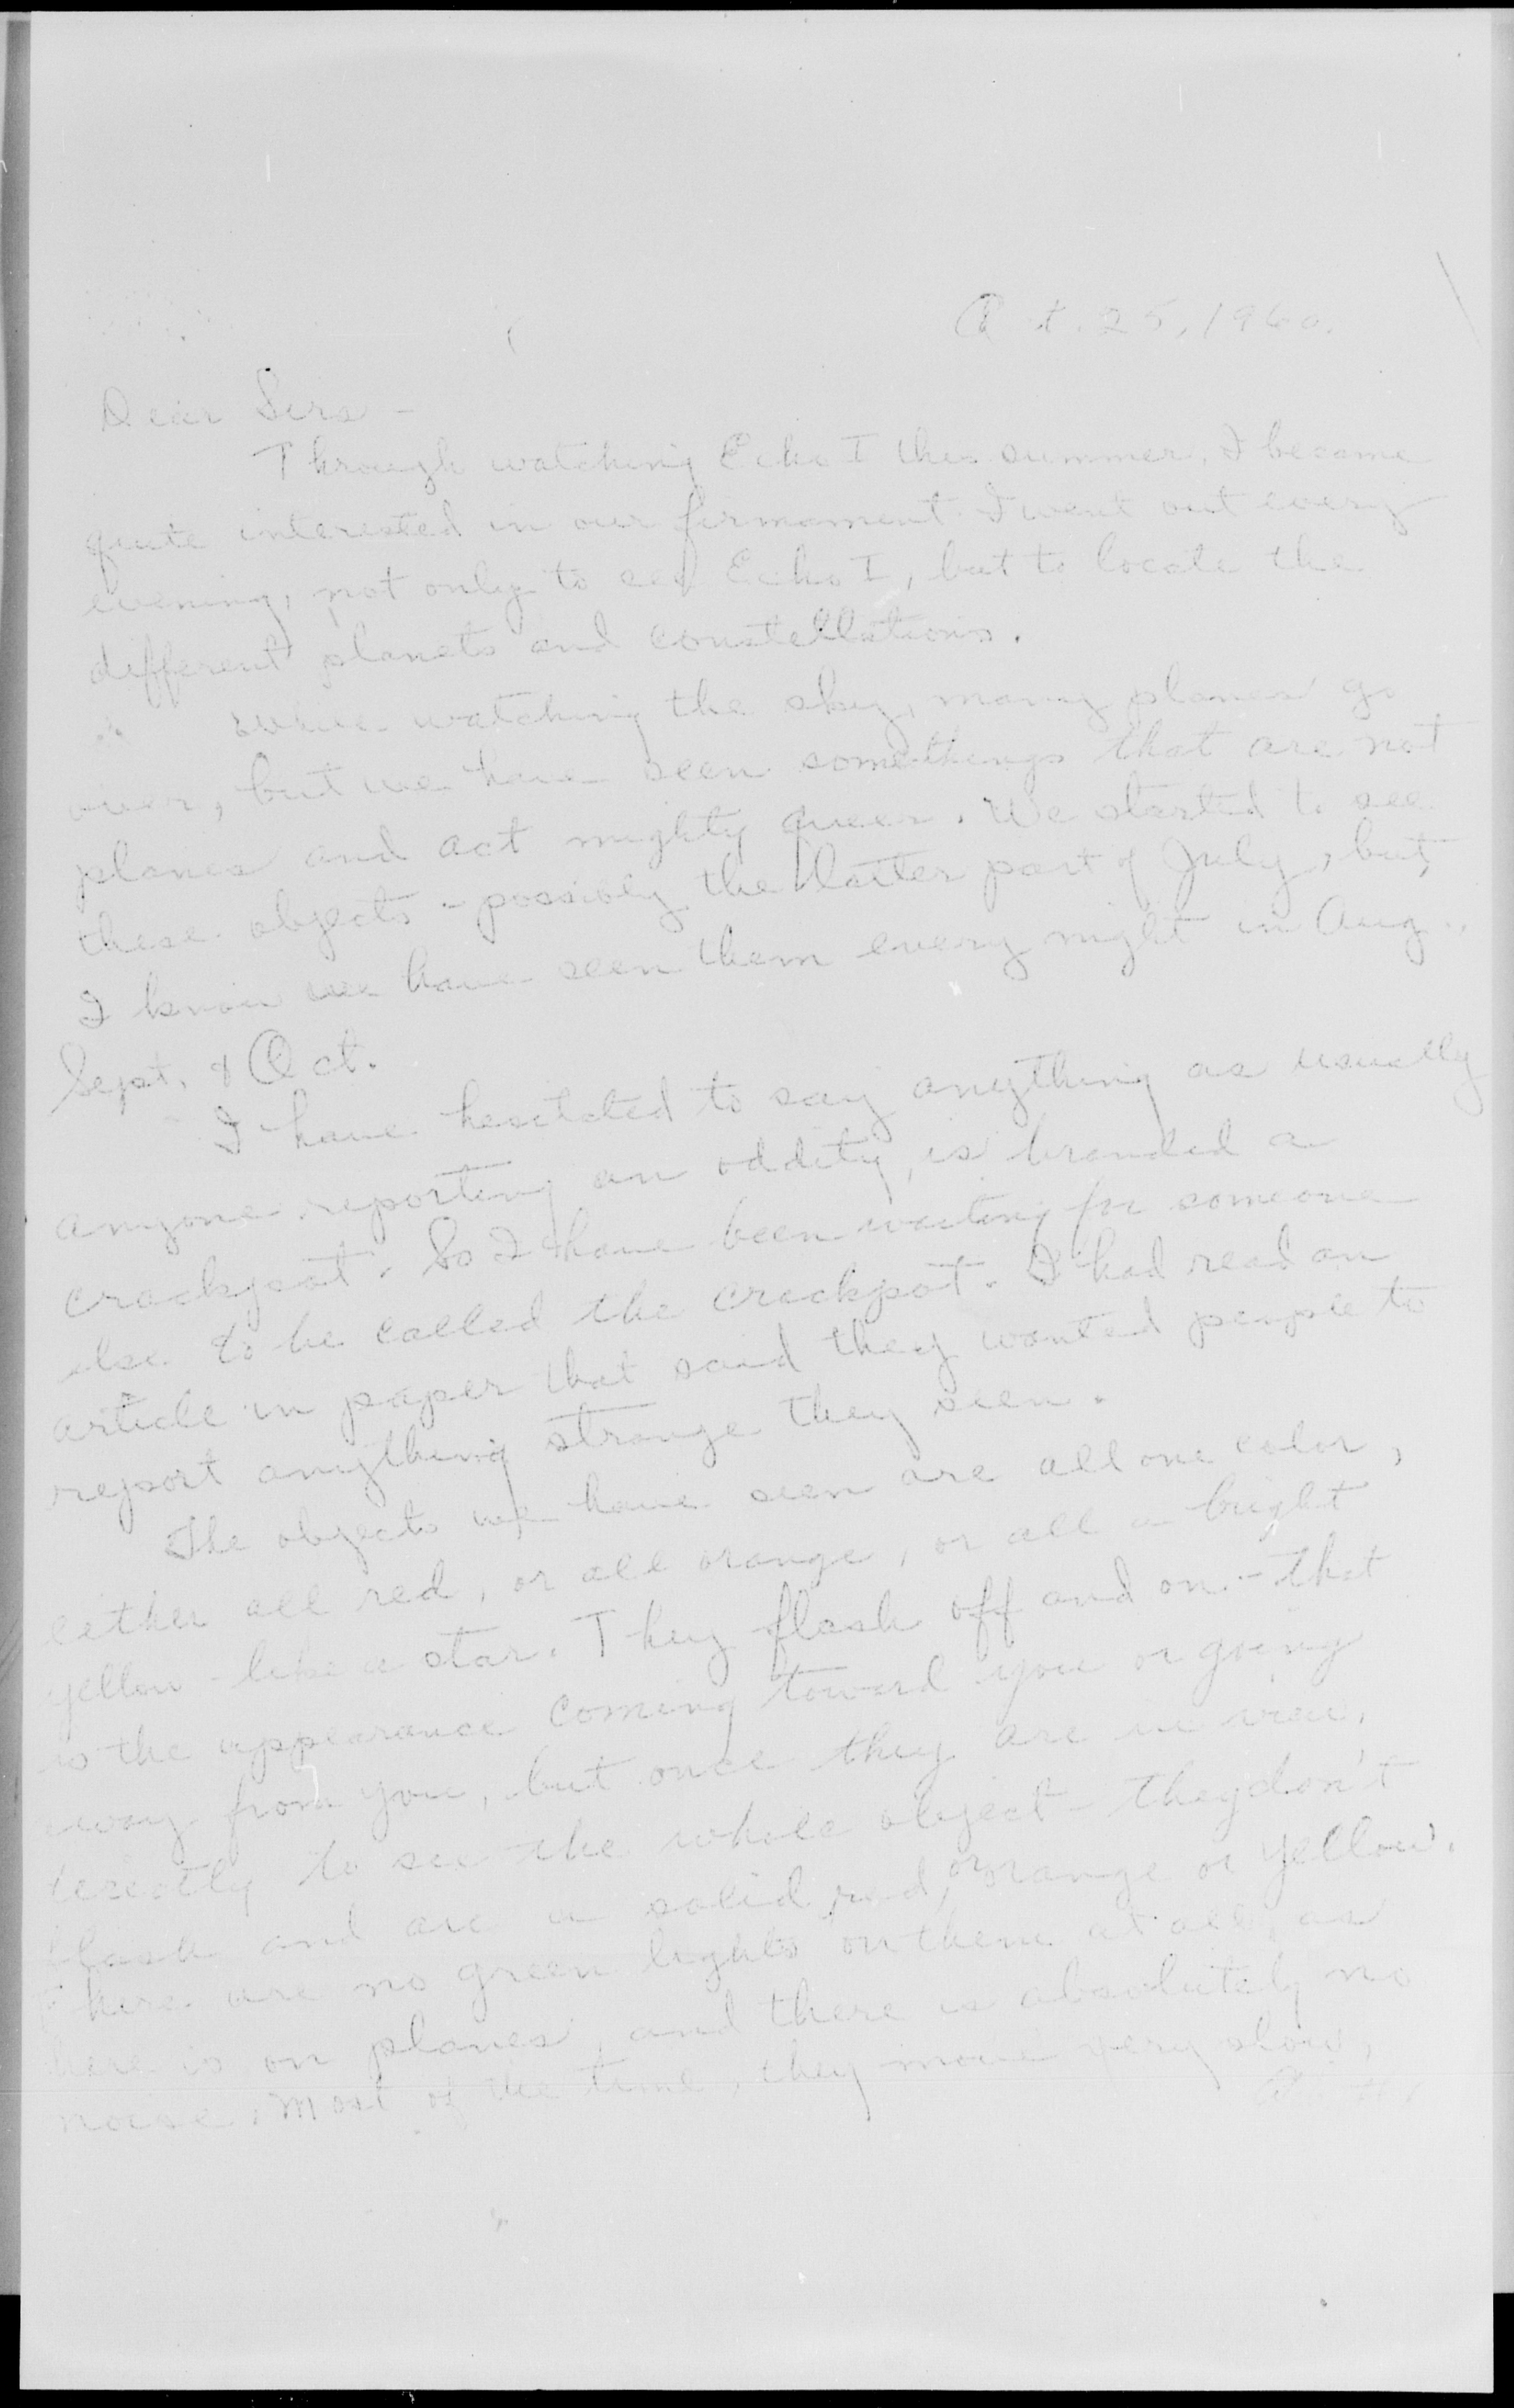 Oct. 25, 1960.
Dear Sirs -
Through watching Echo I this summer, I became
quite interested in our firmament. I went out every
evening, not only to see Echo I, but to locate the
different planets and constellations.
While watching the sky, many planes go
over, but we have seen somethings that are not
planes and act mighty queer. We started to see
these objects - possibly the latter part of July, but,
I know we have seen them every night in Aug.,
Sept. & Oct.
I have hesitated to say anything as usually
anyone reporting an oddity, is branded a
crackpot. So I have been waiting for someone
else to be called the crackpot. I had read an
article in paper that said they wanted people to
report anything strange they seen.
The objects we have seen are all one color,
either all red, or all orange, or all a bright
yellow - like a star. They flash off and on - that
is the appearance coming toward you or going
away from you, but once they are in view,
directly to see the whole object - they don't
flash and are a solid red, or orange or yellow.
There are no green lights on them at all, as
there is on planes, and there is absolutely no
noise. Most of the time, they move very slow,